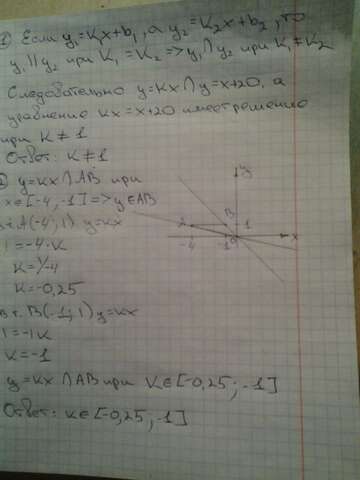 ① Если y₁=K₁x+b₁, а y₂=K₂x+b₂, то
y₁∥y₂ при K₁=K₂=>y₁∩y₂ при K₁≠K₂
Следовательно y=Kx∩y=x+20, а
уравнение Kx=x+20 имеет решение
при K≠1
Ответ: K≠1
y=Kx∩AB при
x∈[-4;-1]=>y∈AB
в т. A(-4;1) y=Kx
1=-4·K
K=1/-4
K=-0,25
в т. B(-1;1) y=Kx
1=-1K
K=-1
y=Kx∩AB при K∈[-0,25;-1]
Ответ: K∈[-0,25;-1]
y
A
B
1
-4
-1
0
x